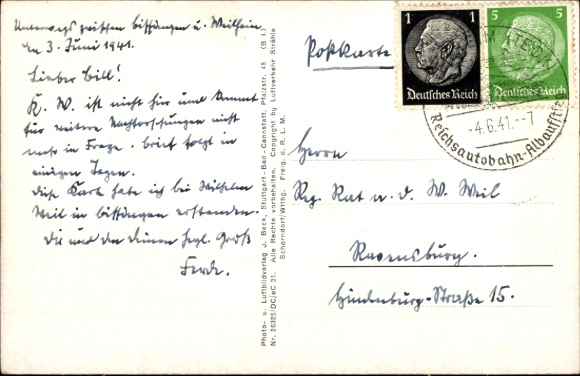 Unterwegs zwischen bissingen u. Weilheim
den 3. Juni 1941.
Lieber Bill!
K. W. ist nicht hier und kommt
für weitere Nachforschungen nicht
mehr in Frage. Brief folgt in
einigen Tagen.
Diese Karte habe ich bei Wilhelm
Weil in bissingen erstanden.
Dir und den Deinen hrzl. Gruß
Ferde.
Photo- u. Luftbildverlag J. Beck, Stuttgart-Bad-Cannstatt, Pfalzstr. 45 (B I.)
Nr. 26325 DC/eC 31. Alle Rechte vorbehalten. Copyright by Luftverkehr Strähle
Schorndorf/Wttbg. Freig. d. R. L. M.
Postkarte
1 1
Deutsches Reich
5 5
Deutsches Reich
TECK
-4.6.41.--7
Reichsautobahn-Albaufstieg
Herrn
Reg. Rat a. D. W. Weil
Ravensburg.
Hindenburg-Straße 15.